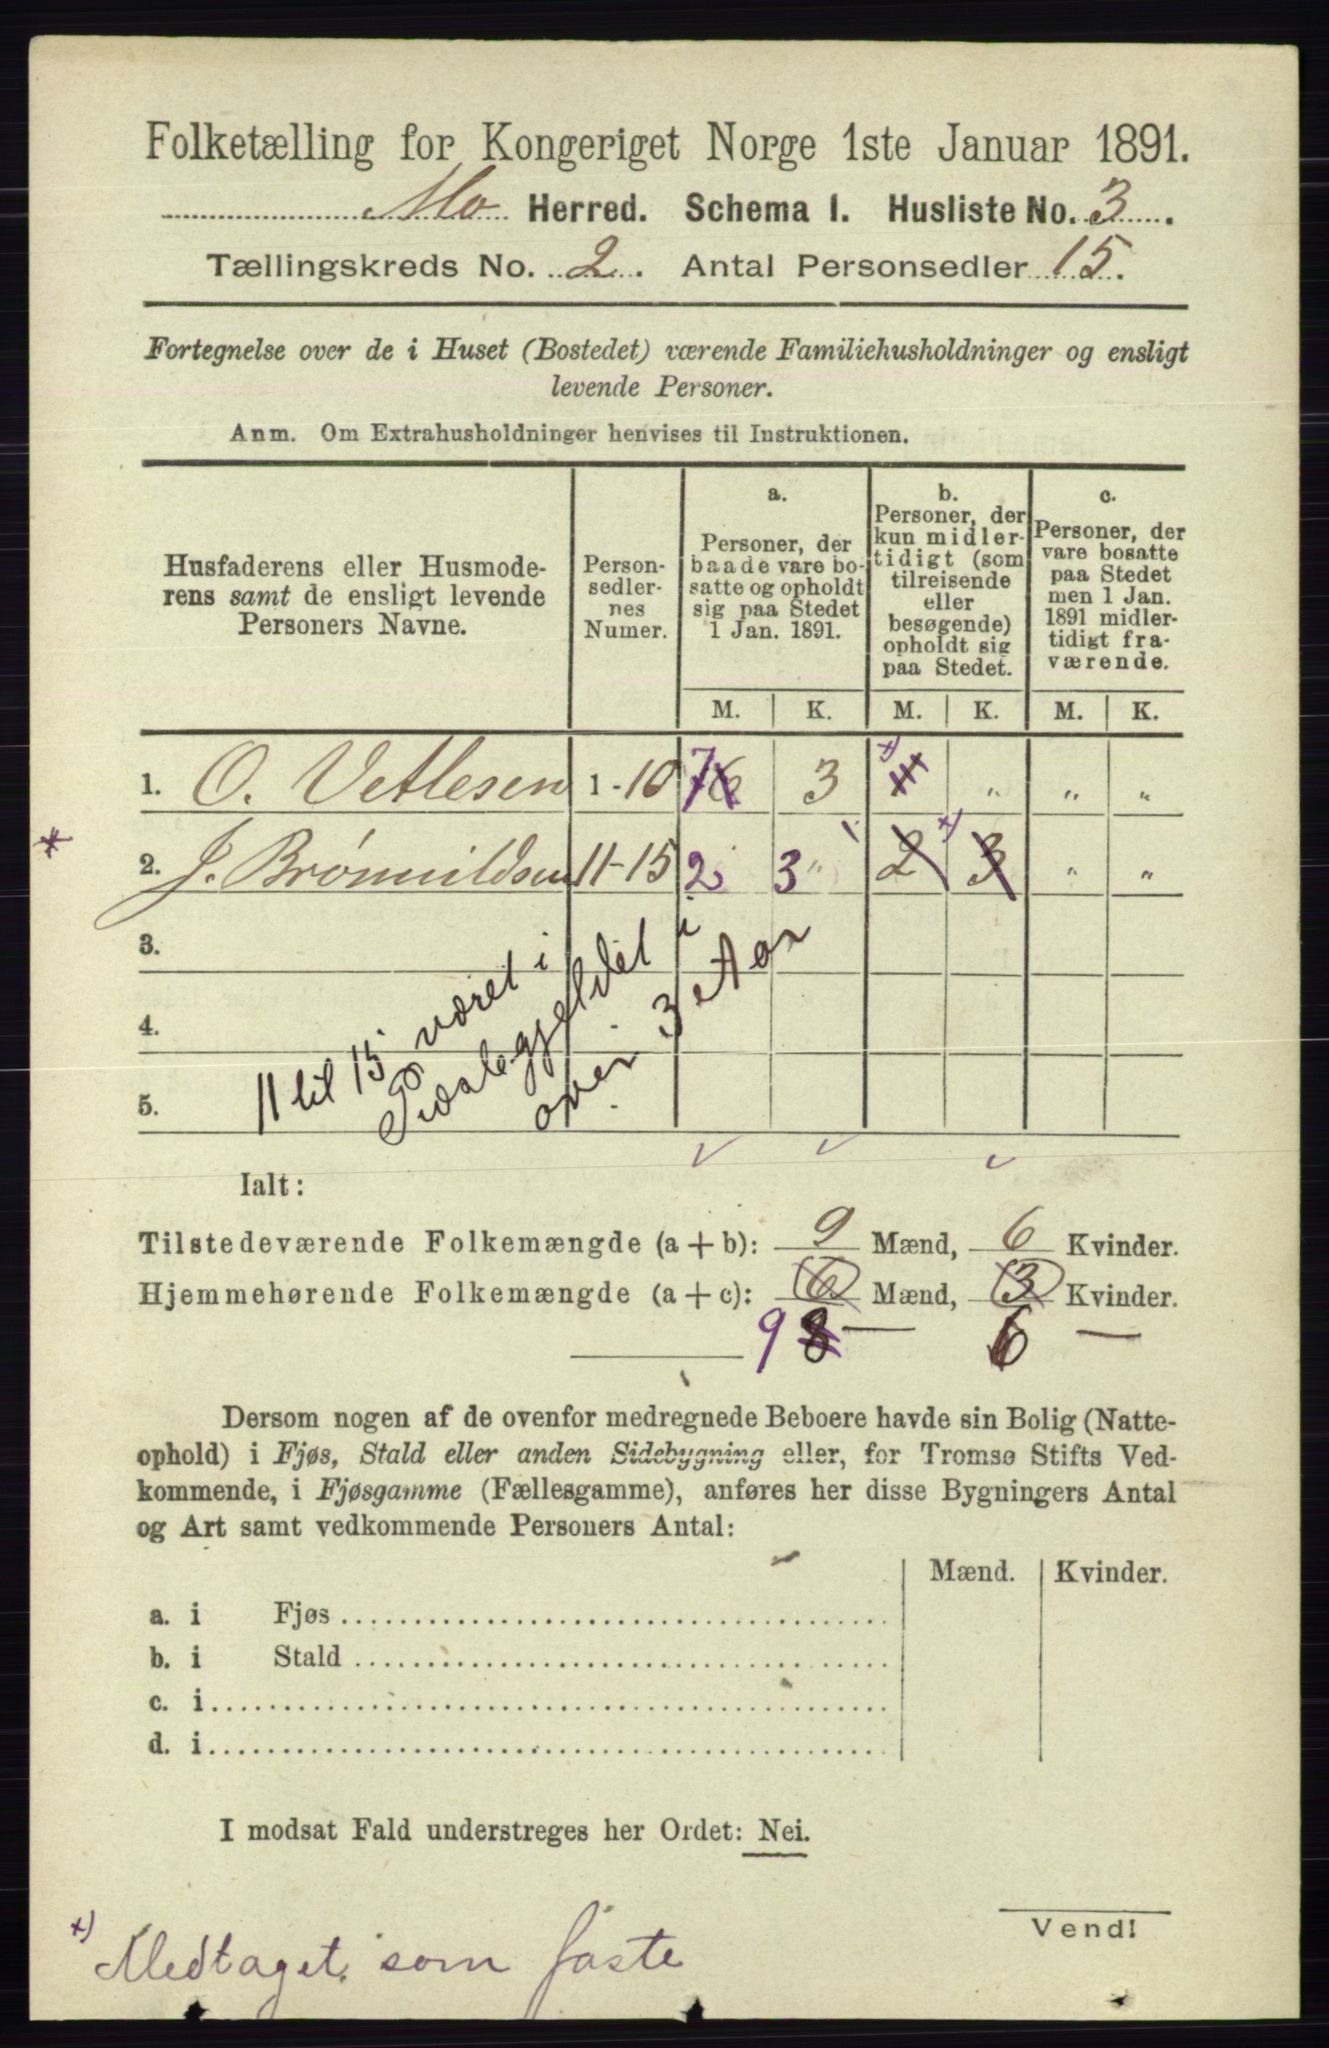 Folketælling for Kongeriget Norge 1ste Januar 1891.
Mo Herred. Schema I. Husliste No. 3.
Tællingskreds No. 2. Antal Personsedler 15.
Fortegnelse over de i Huset (Bostedet) værende Familiehusholdninger og ensligt
levende Personer.
Anm. Om Extrahusholdninger henvises til Instruktionen.
Husfaderens eller Husmode-
rens samt de ensligt levende
Personers Navne.
Person-
sedler-
nes
Numer.
a.
Personer, der
baade vare bo-
satte og opholdt
sig paa Stedet
1 Jan. 1891.
b.
Personer, der
kun midler-
tidigt (som
tilreisende
eller
besøgende)
opholdt sig
paa Stedet.
c.
Personer, der
vare bosatte
paa Stedet
men 1 Jan.
1891 midler-
tidigt fra-
værende.
M. K. M. K. M. K.
1. O. Vetlesen 1-10 7 6 3 x) " " "
* 2. J. Brønnildsen 11-15 2 3 " 2 x) 3 " "
3.
4.
5.
11 til 15 været i
over 3 Aar
Ialt:
Tilstedeværende Folkemængde (a + b): 9 Mænd, 6 Kvinder.
Hjemmehørende Folkemængde (a + c): 6 Mænd, 3 Kvinder.
9 8 — 6 —
Dersom nogen af de ovenfor medregnede Beboere havde sin Bolig (Natte-
ophold) i Fjøs, Stald eller anden Sidebygning eller, for Tromsø Stifts Ved-
kommende, i Fjøsgamme (Fællesgamme), anføres her disse Bygningers Antal
og Art samt vedkommende Personers Antal:
Mænd. Kvinder.
a. i Fjøs
b. i Stald
c. i
d. i
I modsat Fald understreges her Ordet: Nei.
Vend!
x) Medtaget som faste